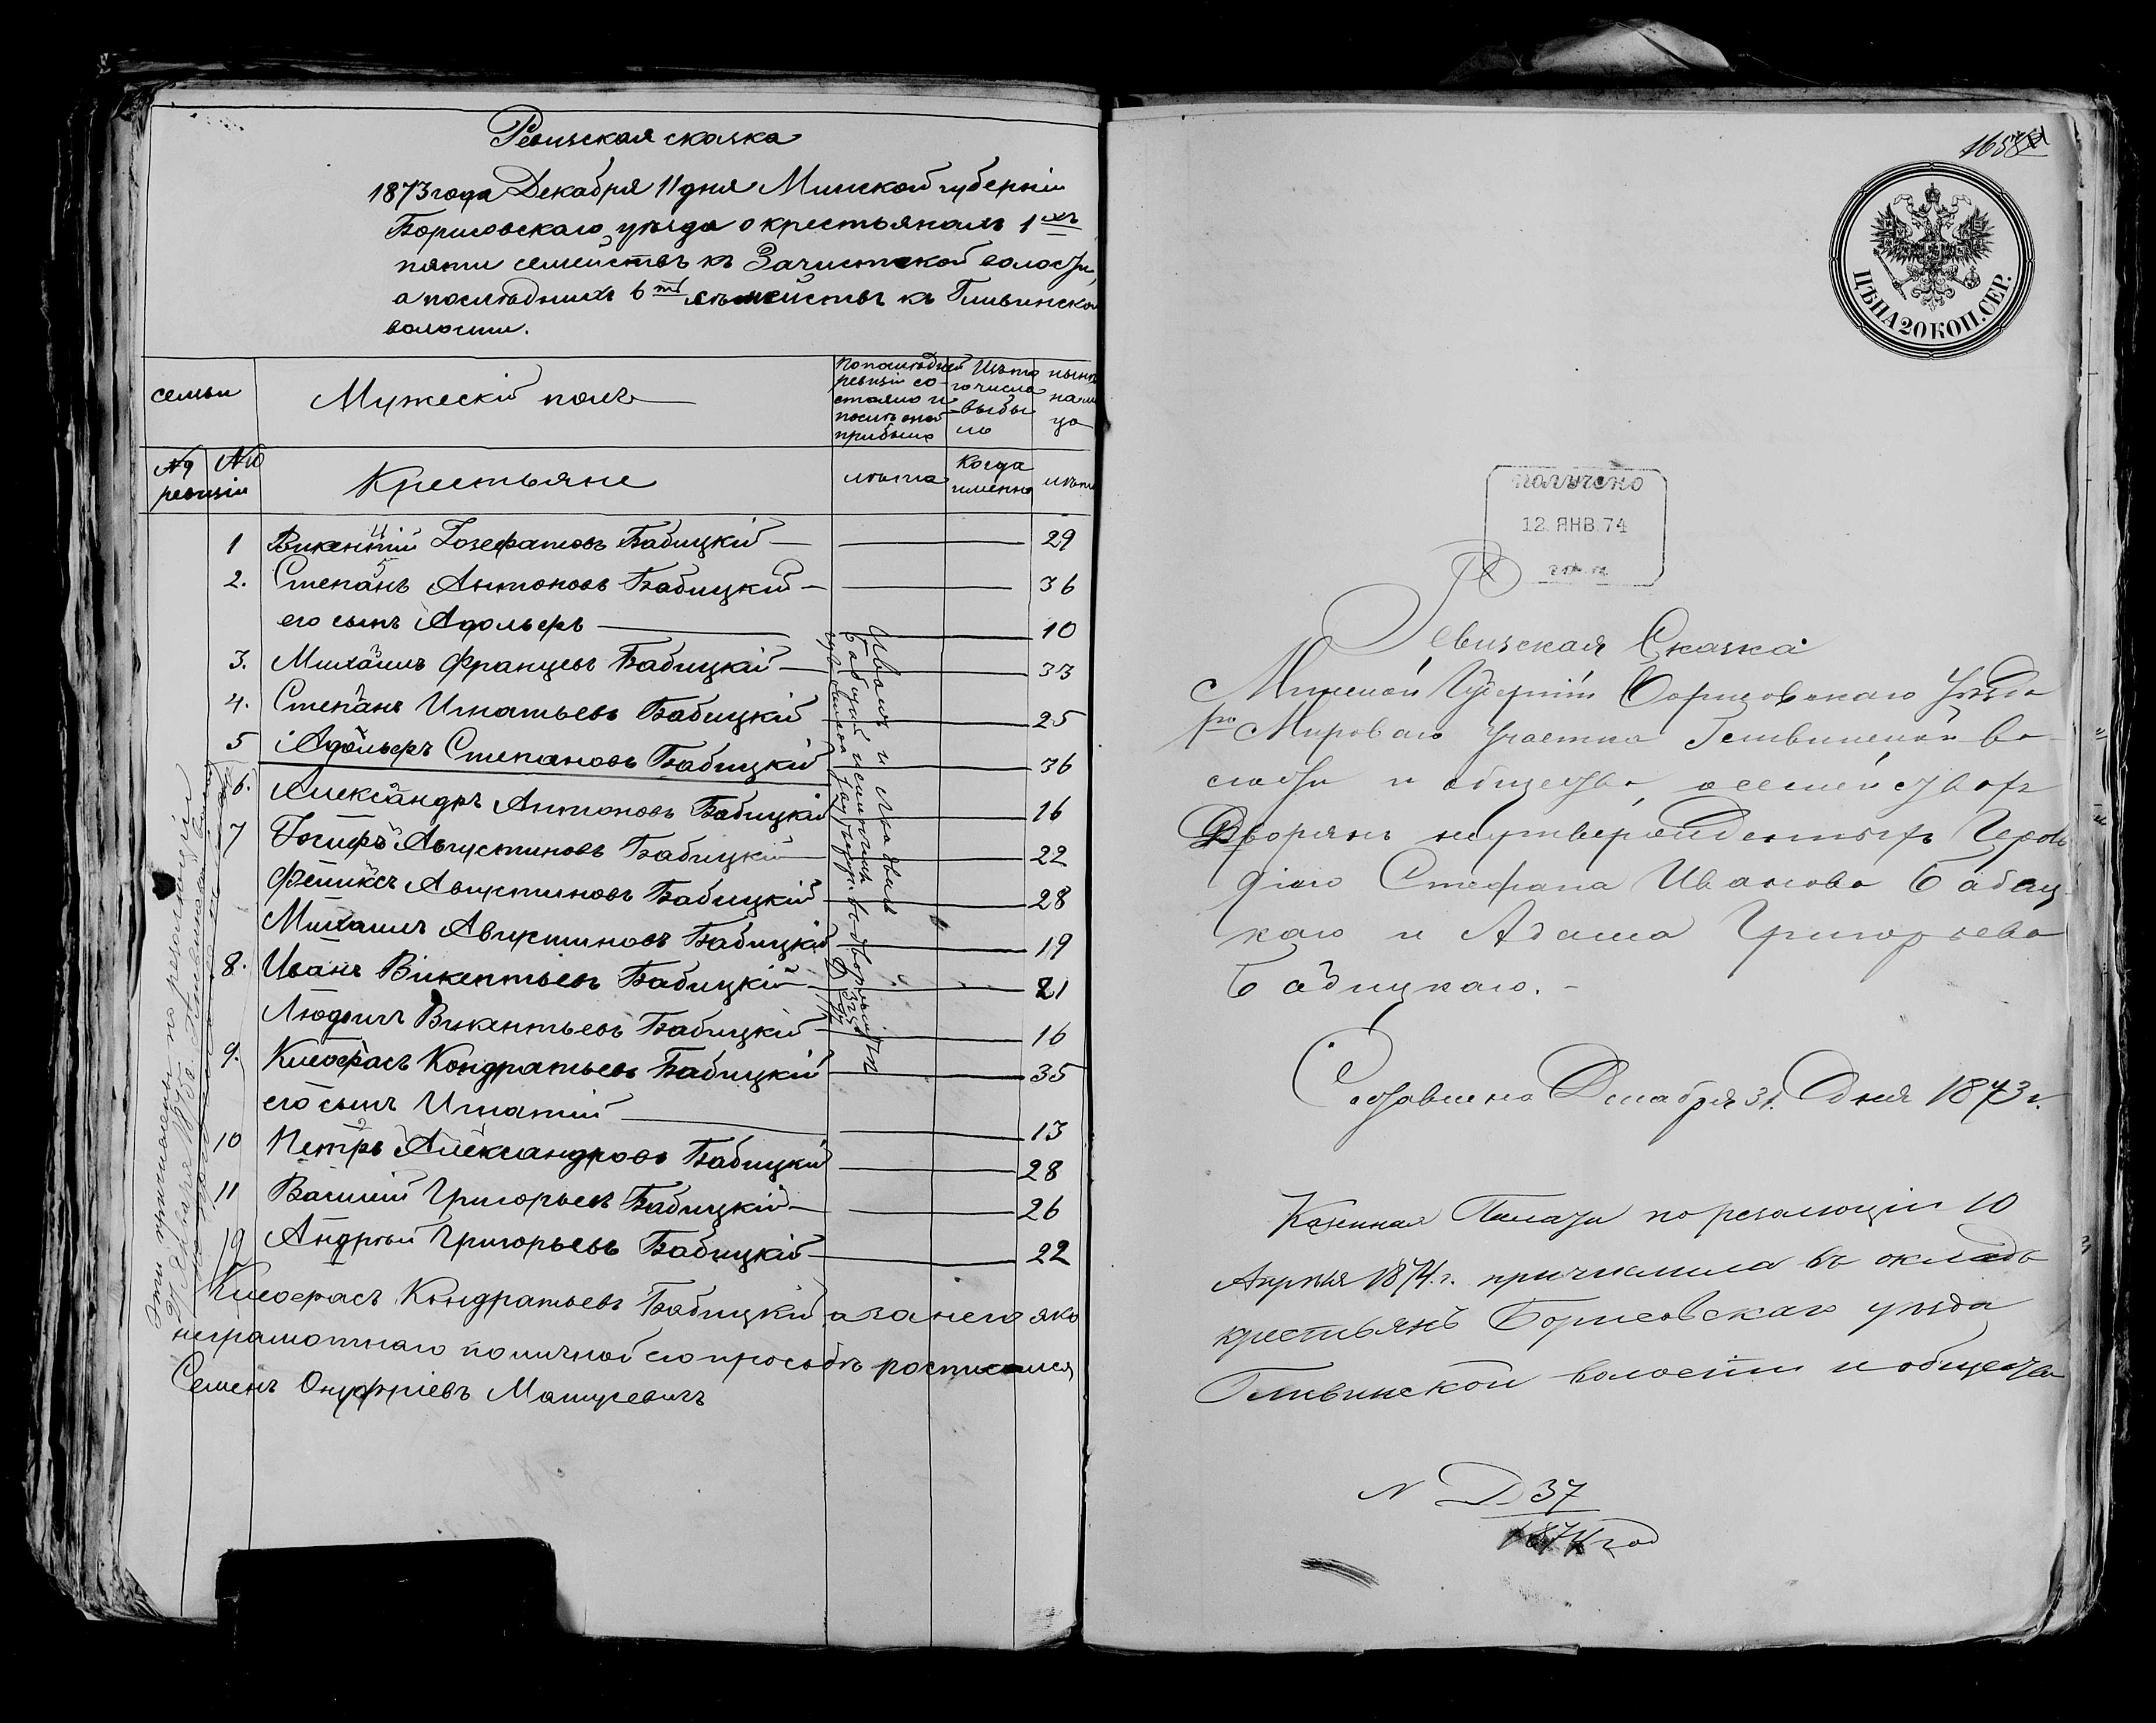 Ревизская сказка
1873 года Декабря 11 дня Минской губерніи
Борисовскаго уѣзда о крестьянахъ 1хъ
пяти семействъ къ Зачистской волости,
а послѣднихъ 6ть семействъ къ Гливинской
волости.
семьи
Мужескій полъ
По послѣдней ревизіи состояло и послѣ оной прибыло
Изъ того числа выбыло
нынѣ на лицо
№ ревизіи
№
Крестьяне
лѣта
Когда именно
лѣта
1 Викентій Іозефатовъ Бабицкій 29
2. Степанъ Антоновъ Бабицкій 36
его сынъ Адольфъ 10
3. Михаилъ Францевъ Бабицкій 33
4. Степанъ Игнатьевъ Бабицкій 25
5 Адольфъ Степановъ Бабицкій 36
6. Александръ Антоновъ Бабицкій 16
7 Іосифъ Августиновъ Бабицкій 22
Феликсъ Августиновъ Бабицкій 28
Михаилъ Августиновъ Бабицкій 19
8. Иванъ Викентьевъ Бабицкій 21
Людвигъ Викентьевъ Бабицкій 16
9. Клеофасъ Кондратьевъ Бабицкій 35
его сынъ Игнатій 13
10 Петръ Александровъ Бабицкій 28
11 Василій Григорьевъ Бабицкій 26
Андрей Григорьевъ Бабицкій 22
Клеофасъ Кондратьевъ Бабицкій а за него яко
неграмотнаго по личной его просьбѣ росписался
Семенъ Онуфріевъ Матусевичъ
Эти причислены по резолюціи
27 Января 1875 г.
Иванъ и Людвигъ
Бабицкій исключ.
1658
ЦѢНА 20 КОП. СЕР.
ПОЛУЧЕНО
12 ЯНВ 74
Ревизская Сказка
Минской Губерніи Борисовскаго Уѣзда
1го Мироваго Участка Гливинской во
лости и общества о семействахъ
Дворянъ неутвержденныхъ Героль
діею Стефана Иванова Бабиц
каго и Адама Григорьева
Бабицкаго.
Составлена Декабря 31. Дня 1873 г.
Казенная Палата по резолюціи 10
Апрѣля 1874 г. причислила въ окладъ
крестьянъ Борисовскаго уѣзда
Гливинской волости и общества
N Д 37
1874 год